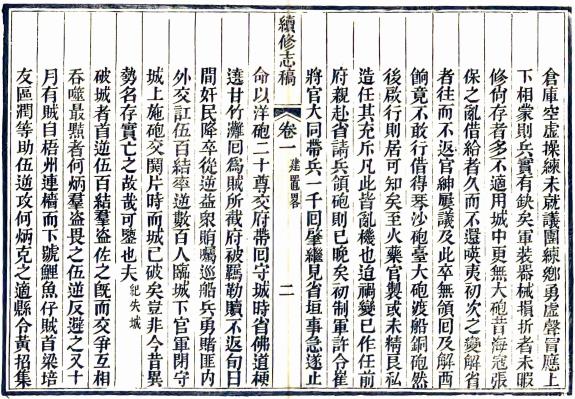 倉庫空虛操練未就議團練鄉勇虛聲冒應上
下相蒙則兵實有缺矣軍裝器械損折者未暇
修尙存者多不適用城中更無大砲昔海寇張
保之亂借給者久而不還暎夷初次之變解省
者往而不返官紳屢議及此卒無領回及解酉
餉竟不敢行借得琴沙砲臺大砲渡船銅砲然
後啟行則居可知矣至火藥官製或未精良私
造任其充斥凡此皆亂機也迫禍變已作任前
府親赴省請兵領砲則已晚矣初制軍許令崔
將官大同帶兵一千回肇繼見省垣事急遂止
續修志稿 卷一 建置畧 二
命以洋砲二十尊交府帶回守城時省佛道梗
遶甘竹灘回爲賊所截府被羈勒贖不返旬日
間奸民降卒從逆益衆賄囑巡船兵勇賭匪内
外交訌伍百結率逆數百人臨城下官軍閉守
城上施砲交閧片時而城已破矣豈非今昔異
勢名存實亡之故哉可鑒也夫 紀失城
破城者首逆伍百結羣盜佐之旣而交爭互相
吞噬最黠者何炳羣盜畏之伍逆反避之又十
月有賊自梧州連檣而下號鯉魚仔賊首梁培
友區潤等助伍逆攻何炳克之適縣令黃招集